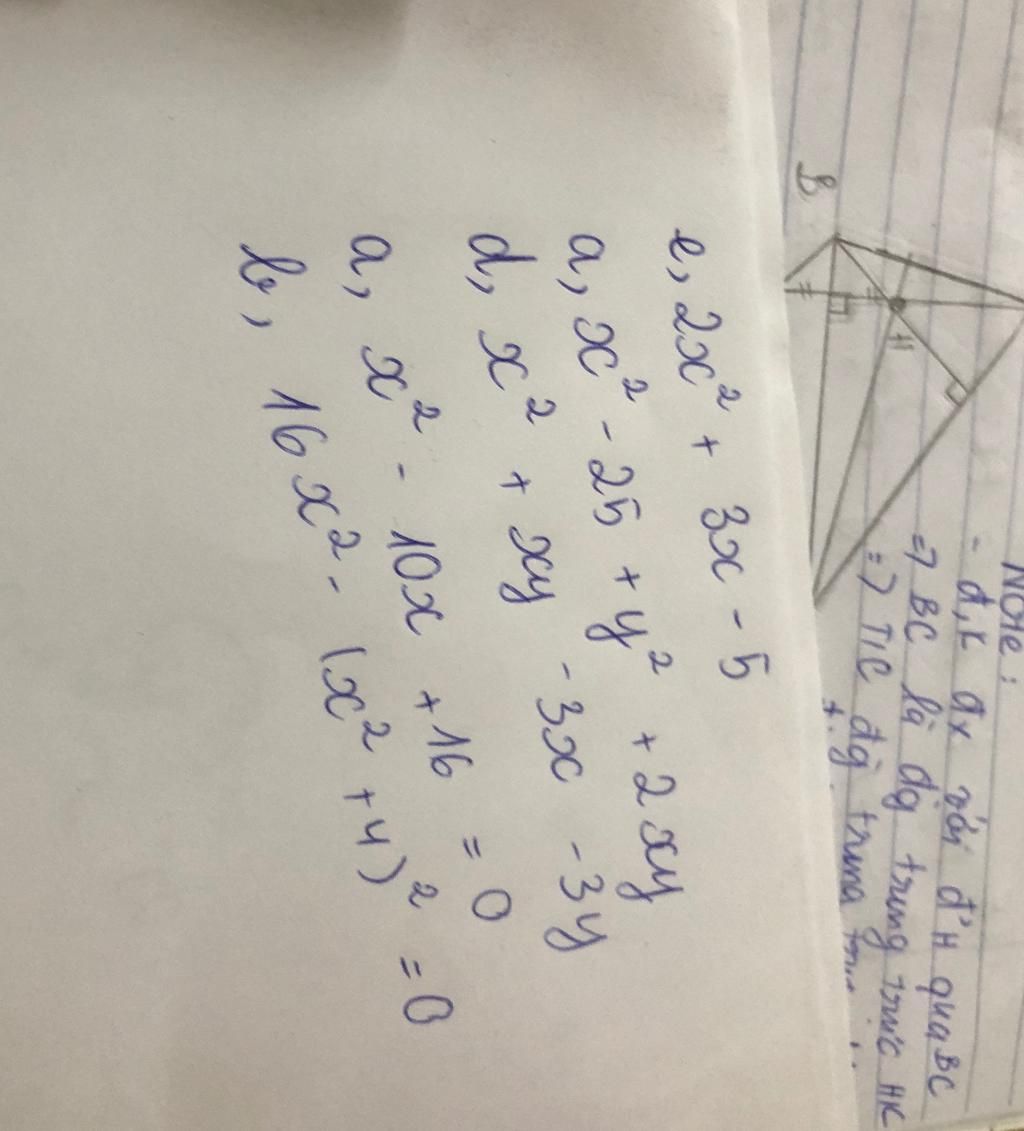 Note:
- đ,K đx với đ'H qua BC
=> BC là đg trung trực HK
=> TIC đg trung
B
H
e, 2x² + 3x - 5
a, x² - 25 + y² + 2xy
d, x² + xy - 3x - 3y
a, x² - 10x + 16 = 0
b, 16x² - (x² + 4)² = 0